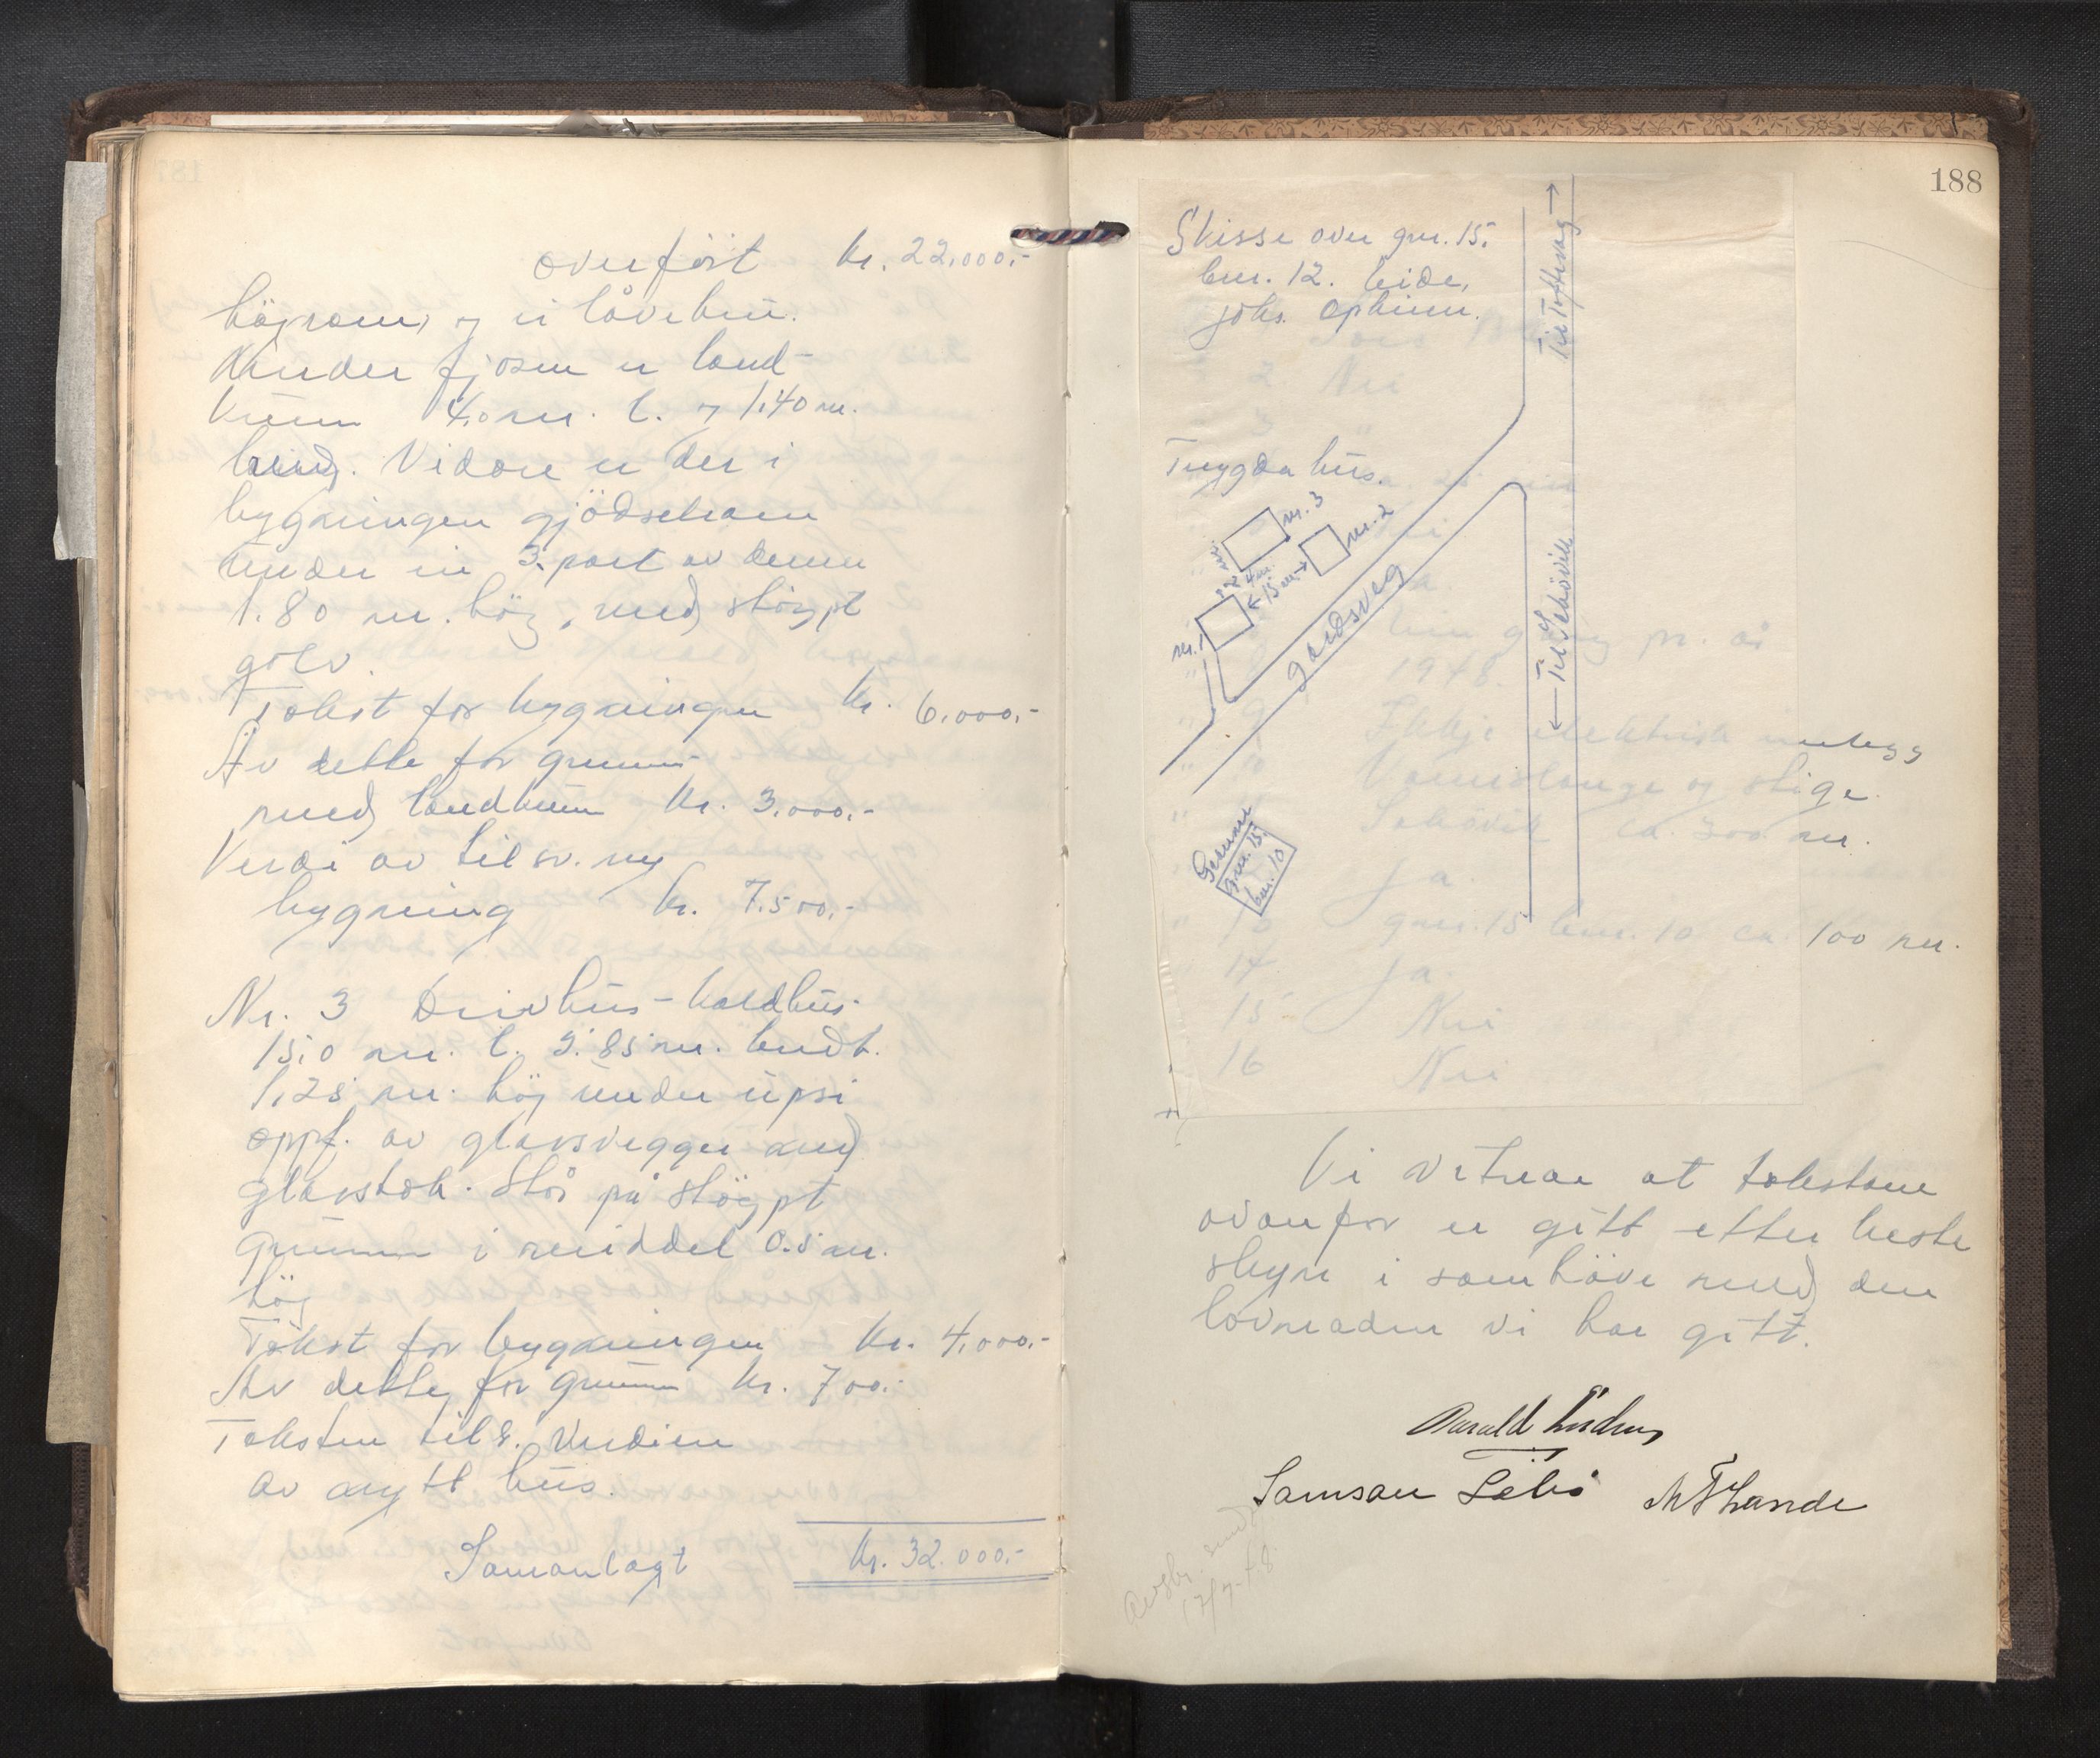 overført kr. 22.000.-
høyrom, og ei låvebru.
Under fjosen er land-
kum 4,0 m. l. og 1,40 m.
bred. Vidare er der i
bygningen gjødselrom
under ein 3. part av denne
1.80 m. høg, med støypt
golv.
Takst for bygningen kr. 6.000.-
Av dette for grunn-
med landkum kr. 3.000.-
Verdi av tilsv. ny
bygning kr. 7.500.-
Nr. 3 Drivhus - kaldhus.
15,0 m. l. 3.85 m. bredt.
1,25 m. høg under upsi
oppf. av glasvegger med
glastak. Står på støypt
grunnmur i middel 0.5 m.
høg
Takst for bygningen kr. 4.000.-
Av dette for grunnm kr. 700.-
Taksten tils. verdien
av nytt hus.
Samanlagt kr. 32.000.-
188
Skisse over gnr. 15.
bnr. 12. Eide,
Johs. Opheim.
Til Toftesag →
Trygda hus.
nr. 3
nr. 2
4 m.
← 15 m. →
nr. 1
gardsveg
← Til Søhøvik
gnr. 15.
bnr. 10
2 Nei
1948.
Ikkje elektrisk innlegg
Vannslange og stige
ca. 300 m.
Ja.
gnr. 15 bnr. 10 ca. 100 m.
14 Ja.
15 Nei
16 Nei
Vi vitnar at takstane
ovanfor er gitt etter beste
skyn i samhøve med den
lovnaden vi har gitt.
Samson
M T Lande
17/7-48.